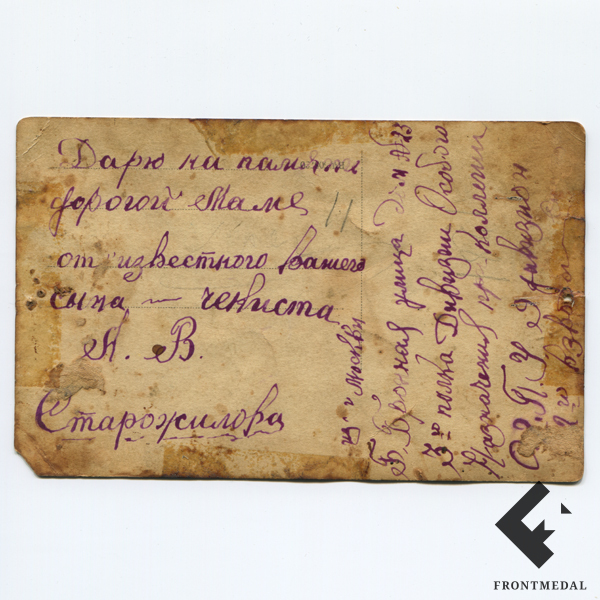 Дарю на память
дорогой Маме
11
от известного вашего
сына — чекиста
А. В.
Старожилова
из г. Москвы
Б Бронная улица Дом № 23
3го полка Дивизии Особого
Назначения при коллегии
О.Г.П.У дивизион
2го взвода
FRONTMEDAL